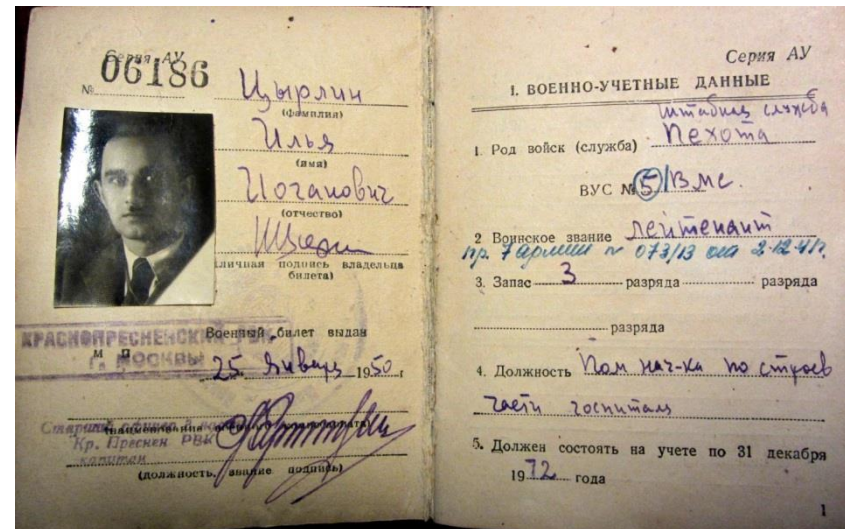 Серия АУ
№ 06186
Цырлин
(фамилия)
Илья
(имя)
Иоганович
(отчество)
(личная подпись владельца
билета)
Военный билет выдан
КРАСНОПРЕСНЕНСКИЙ РВК
г. МОСКВЫ
М П
25 Января 1950 г
Кр. Преснен РВК
капитан
(должность, звание подпись)
Серия АУ
I. ВОЕННО-УЧЕТНЫЕ ДАННЫЕ
штабная служба
1. Род войск (служба) Пехота
ВУС № 5/ВМС.
2 Воинское звание лейтенант
пр. 7 армии № 073/13 от 2-12-41г.
3. Запас 3 разряда разряда
разряда
4. Должность Пом нач-ка по строев
части госпиталя
5. Должен состоять на учете по 31 декабря
1972 года
1